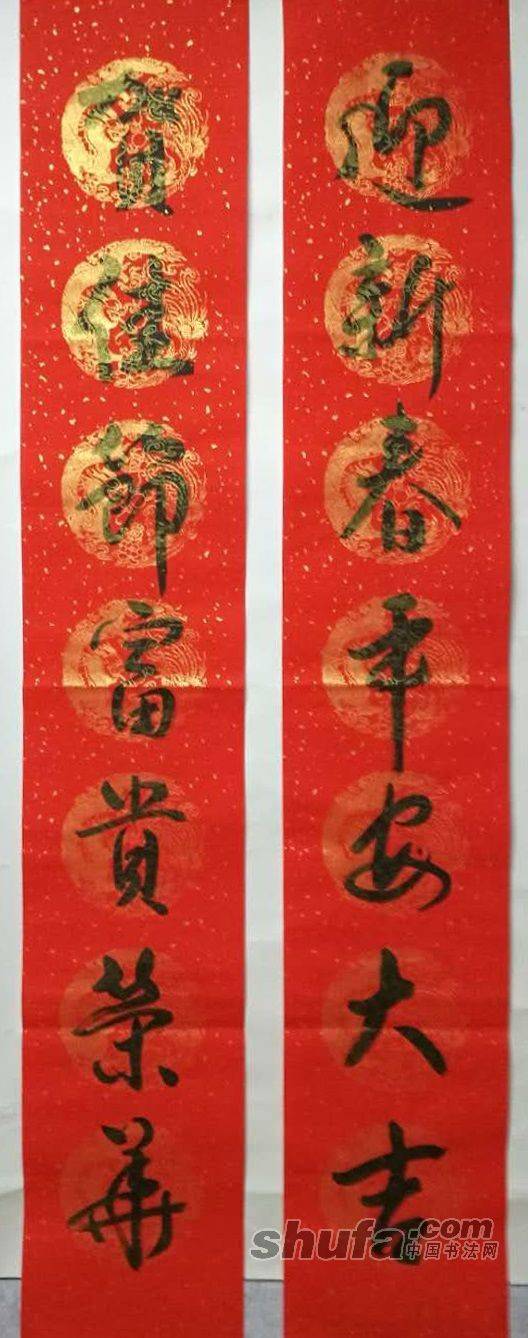 迎新春平安大吉
賀佳節富貴榮華
shufa.com
中国书法网